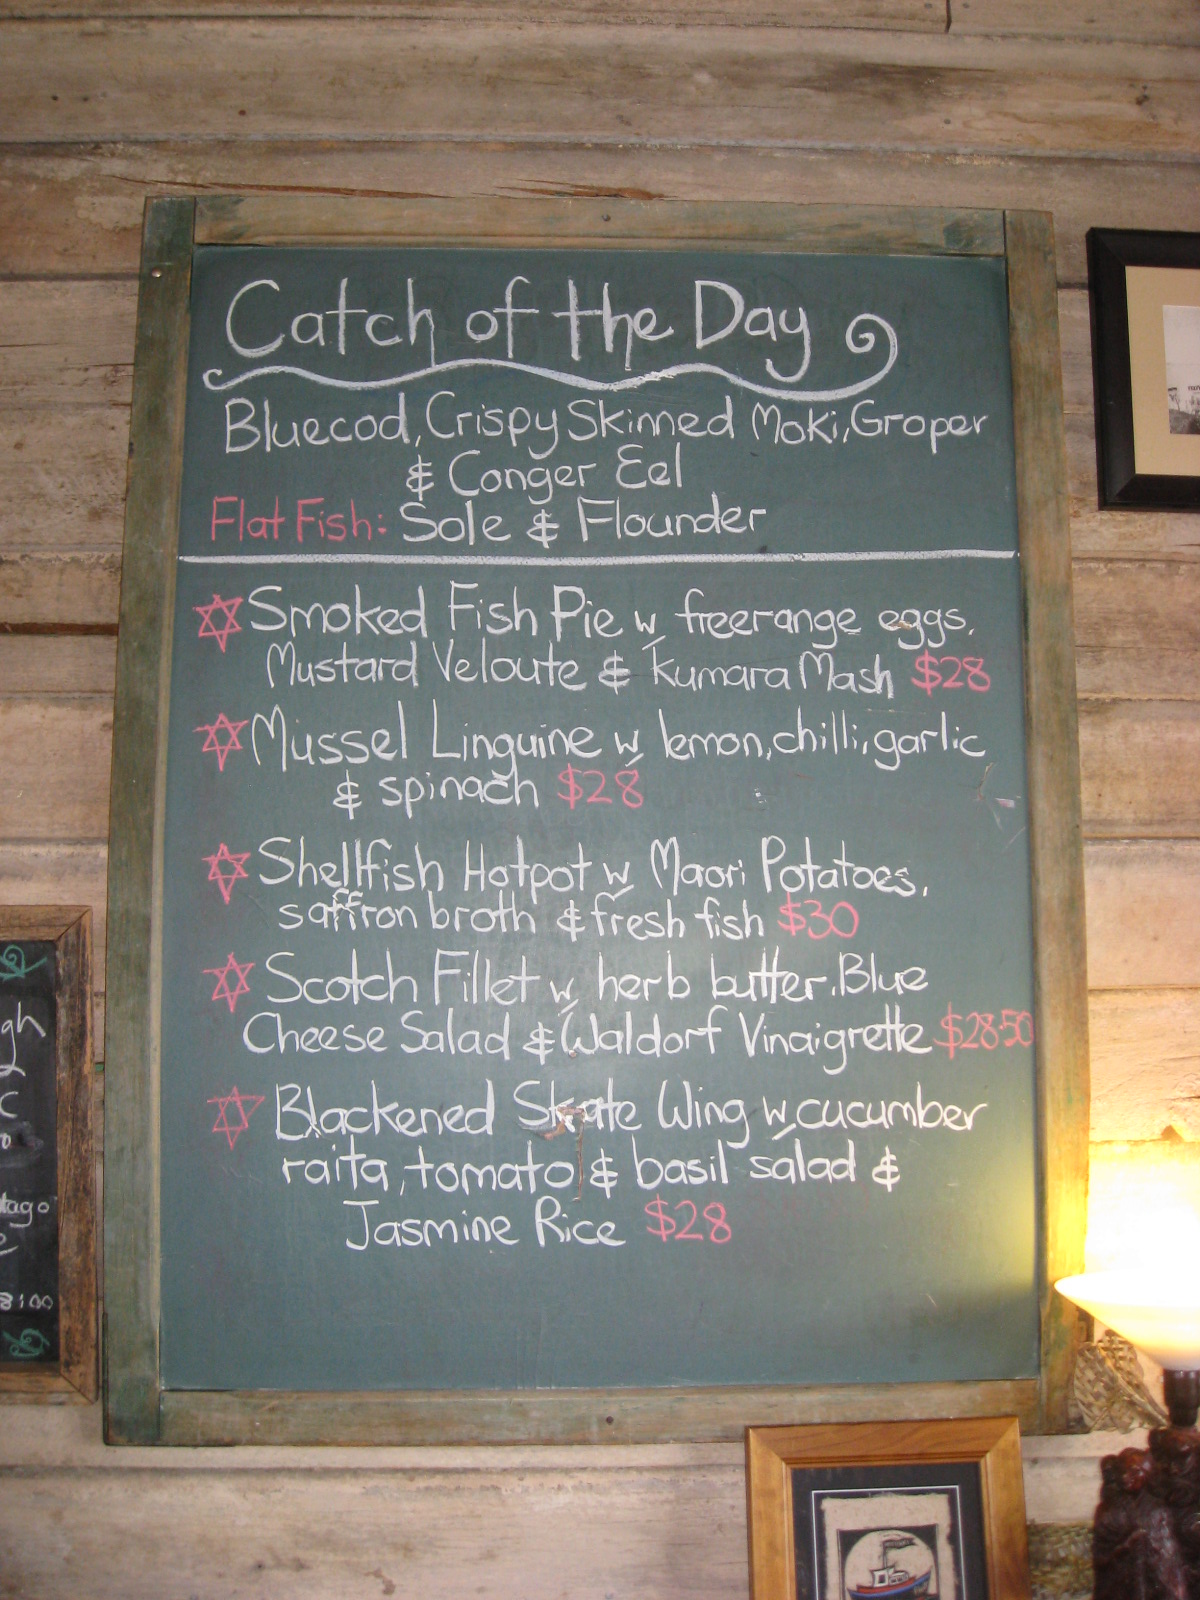 Catch of the Day
Bluecod, Crispy Skinned Moki, Groper
& Conger Eel
Flat Fish: Sole & Flounder
Smoked Fish Pie w freerange eggs,
Mustard Veloute & Kumara Mash $28
Mussel Linguine w lemon, chilli, garlic
& spinach $28
Shellfish Hotpot w Maori Potatoes,
saffron broth & fresh fish $30
Scotch Fillet w herb butter, Blue
Cheese Salad & Waldorf Vinaigrette $28.50
Blackened Skate Wing w cucumber
raita, tomato & basil salad &
Jasmine Rice $28